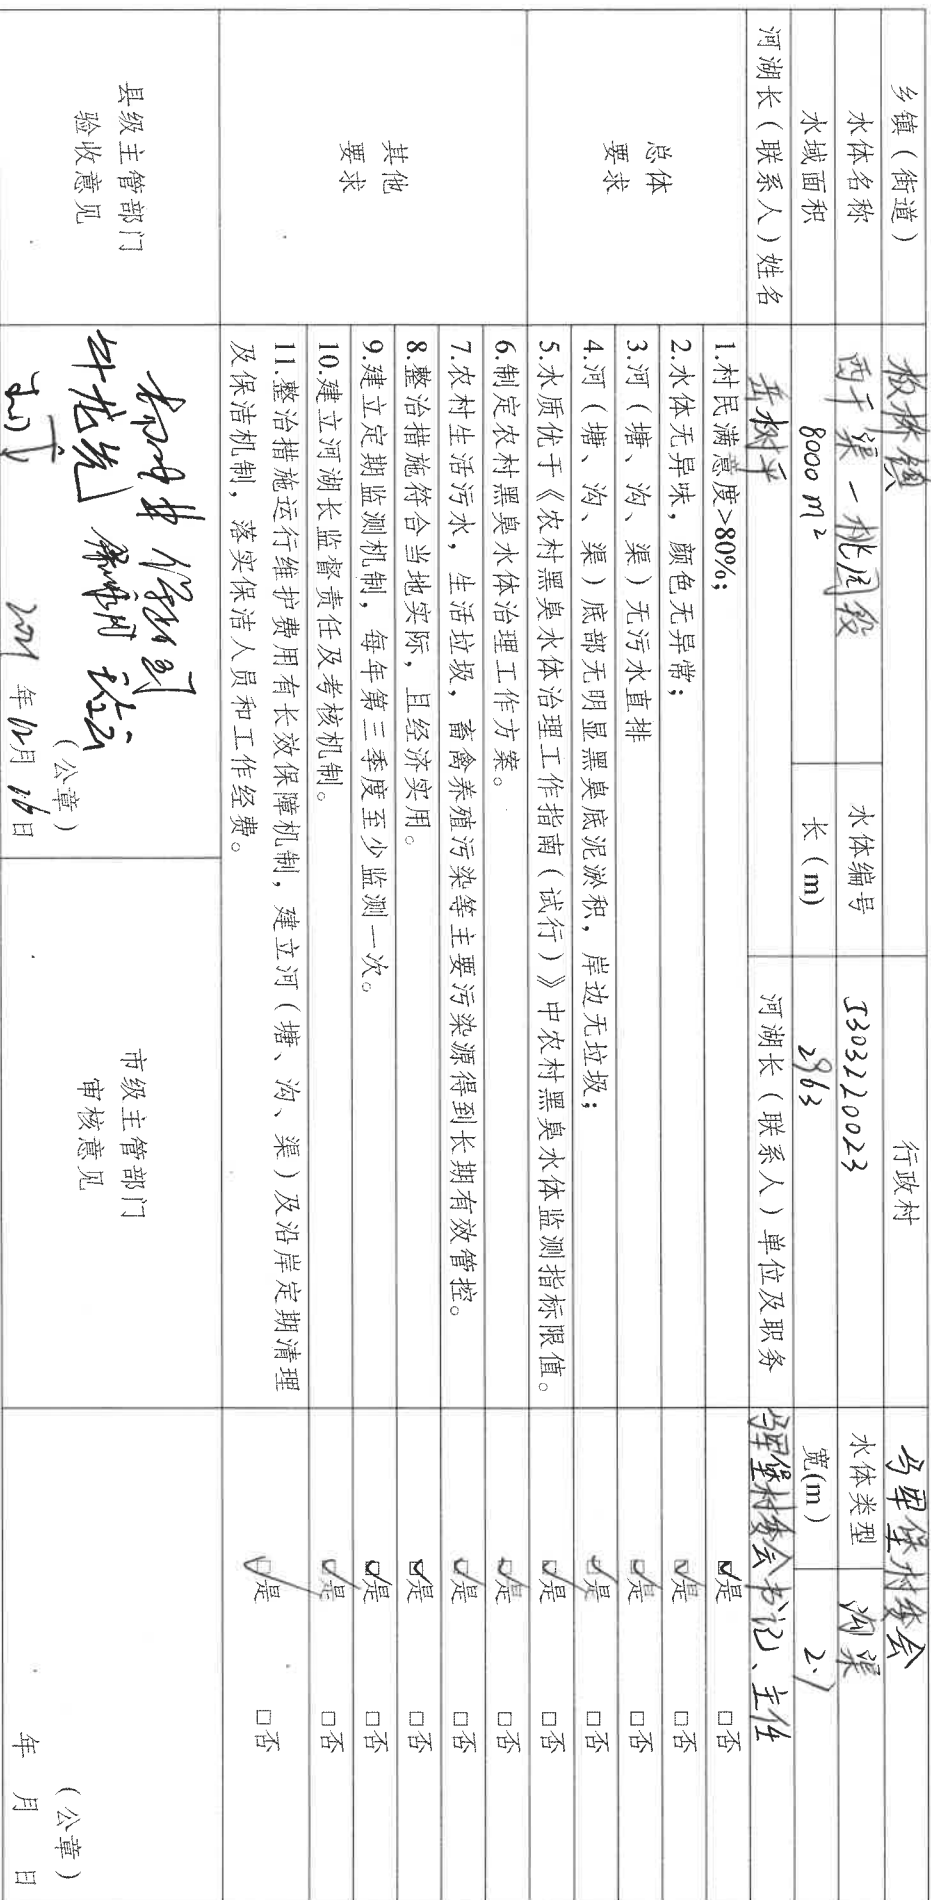 乡镇（街道） 板桥镇 行政村 马军堡村委会
水体名称 西干渠-桃园段 水体编号 5303220023 水体类型 沟渠
水域面积 8000m² 长（m） 2963 宽(m) 2.7
河湖长（联系人）姓名 岳树平 河湖长（联系人）单位及职务 马军堡村委会书记、主任
总体
要求
1.村民满意度>80%； ☑是 □否
2.水体无异味，颜色无异常； ☑是 □否
3.河（塘、沟、渠）无污水直排 ☑是 □否
4.河（塘、沟、渠）底部无明显黑臭底泥淤积，岸边无垃圾； ☑是 □否
5.水质优于《农村黑臭水体治理工作指南（试行）》中农村黑臭水体监测指标限值。 ☑是 □否
其他
要求
6.制定农村黑臭水体治理工作方案。 ☑是 □否
7.农村生活污水，生活垃圾，畜禽养殖污染等主要污染源得到长期有效管控。 ☑是 □否
8.整治措施符合当地实际，且经济实用。 ☑是 □否
9.建立定期监测机制，每年第三季度至少监测一次。 ☑是 □否
10.建立河湖长监督责任及考核机制。 ☑是 □否
11.整治措施运行维护费用有长效保障机制，建立河（塘、沟、渠）及沿岸定期清理
及保洁机制，落实保洁人员和工作经费。 ☑是 □否
县级主管部门
验收意见
（公章）
年12月16日
市级主管部门
审核意见
（公章）
年 月 日